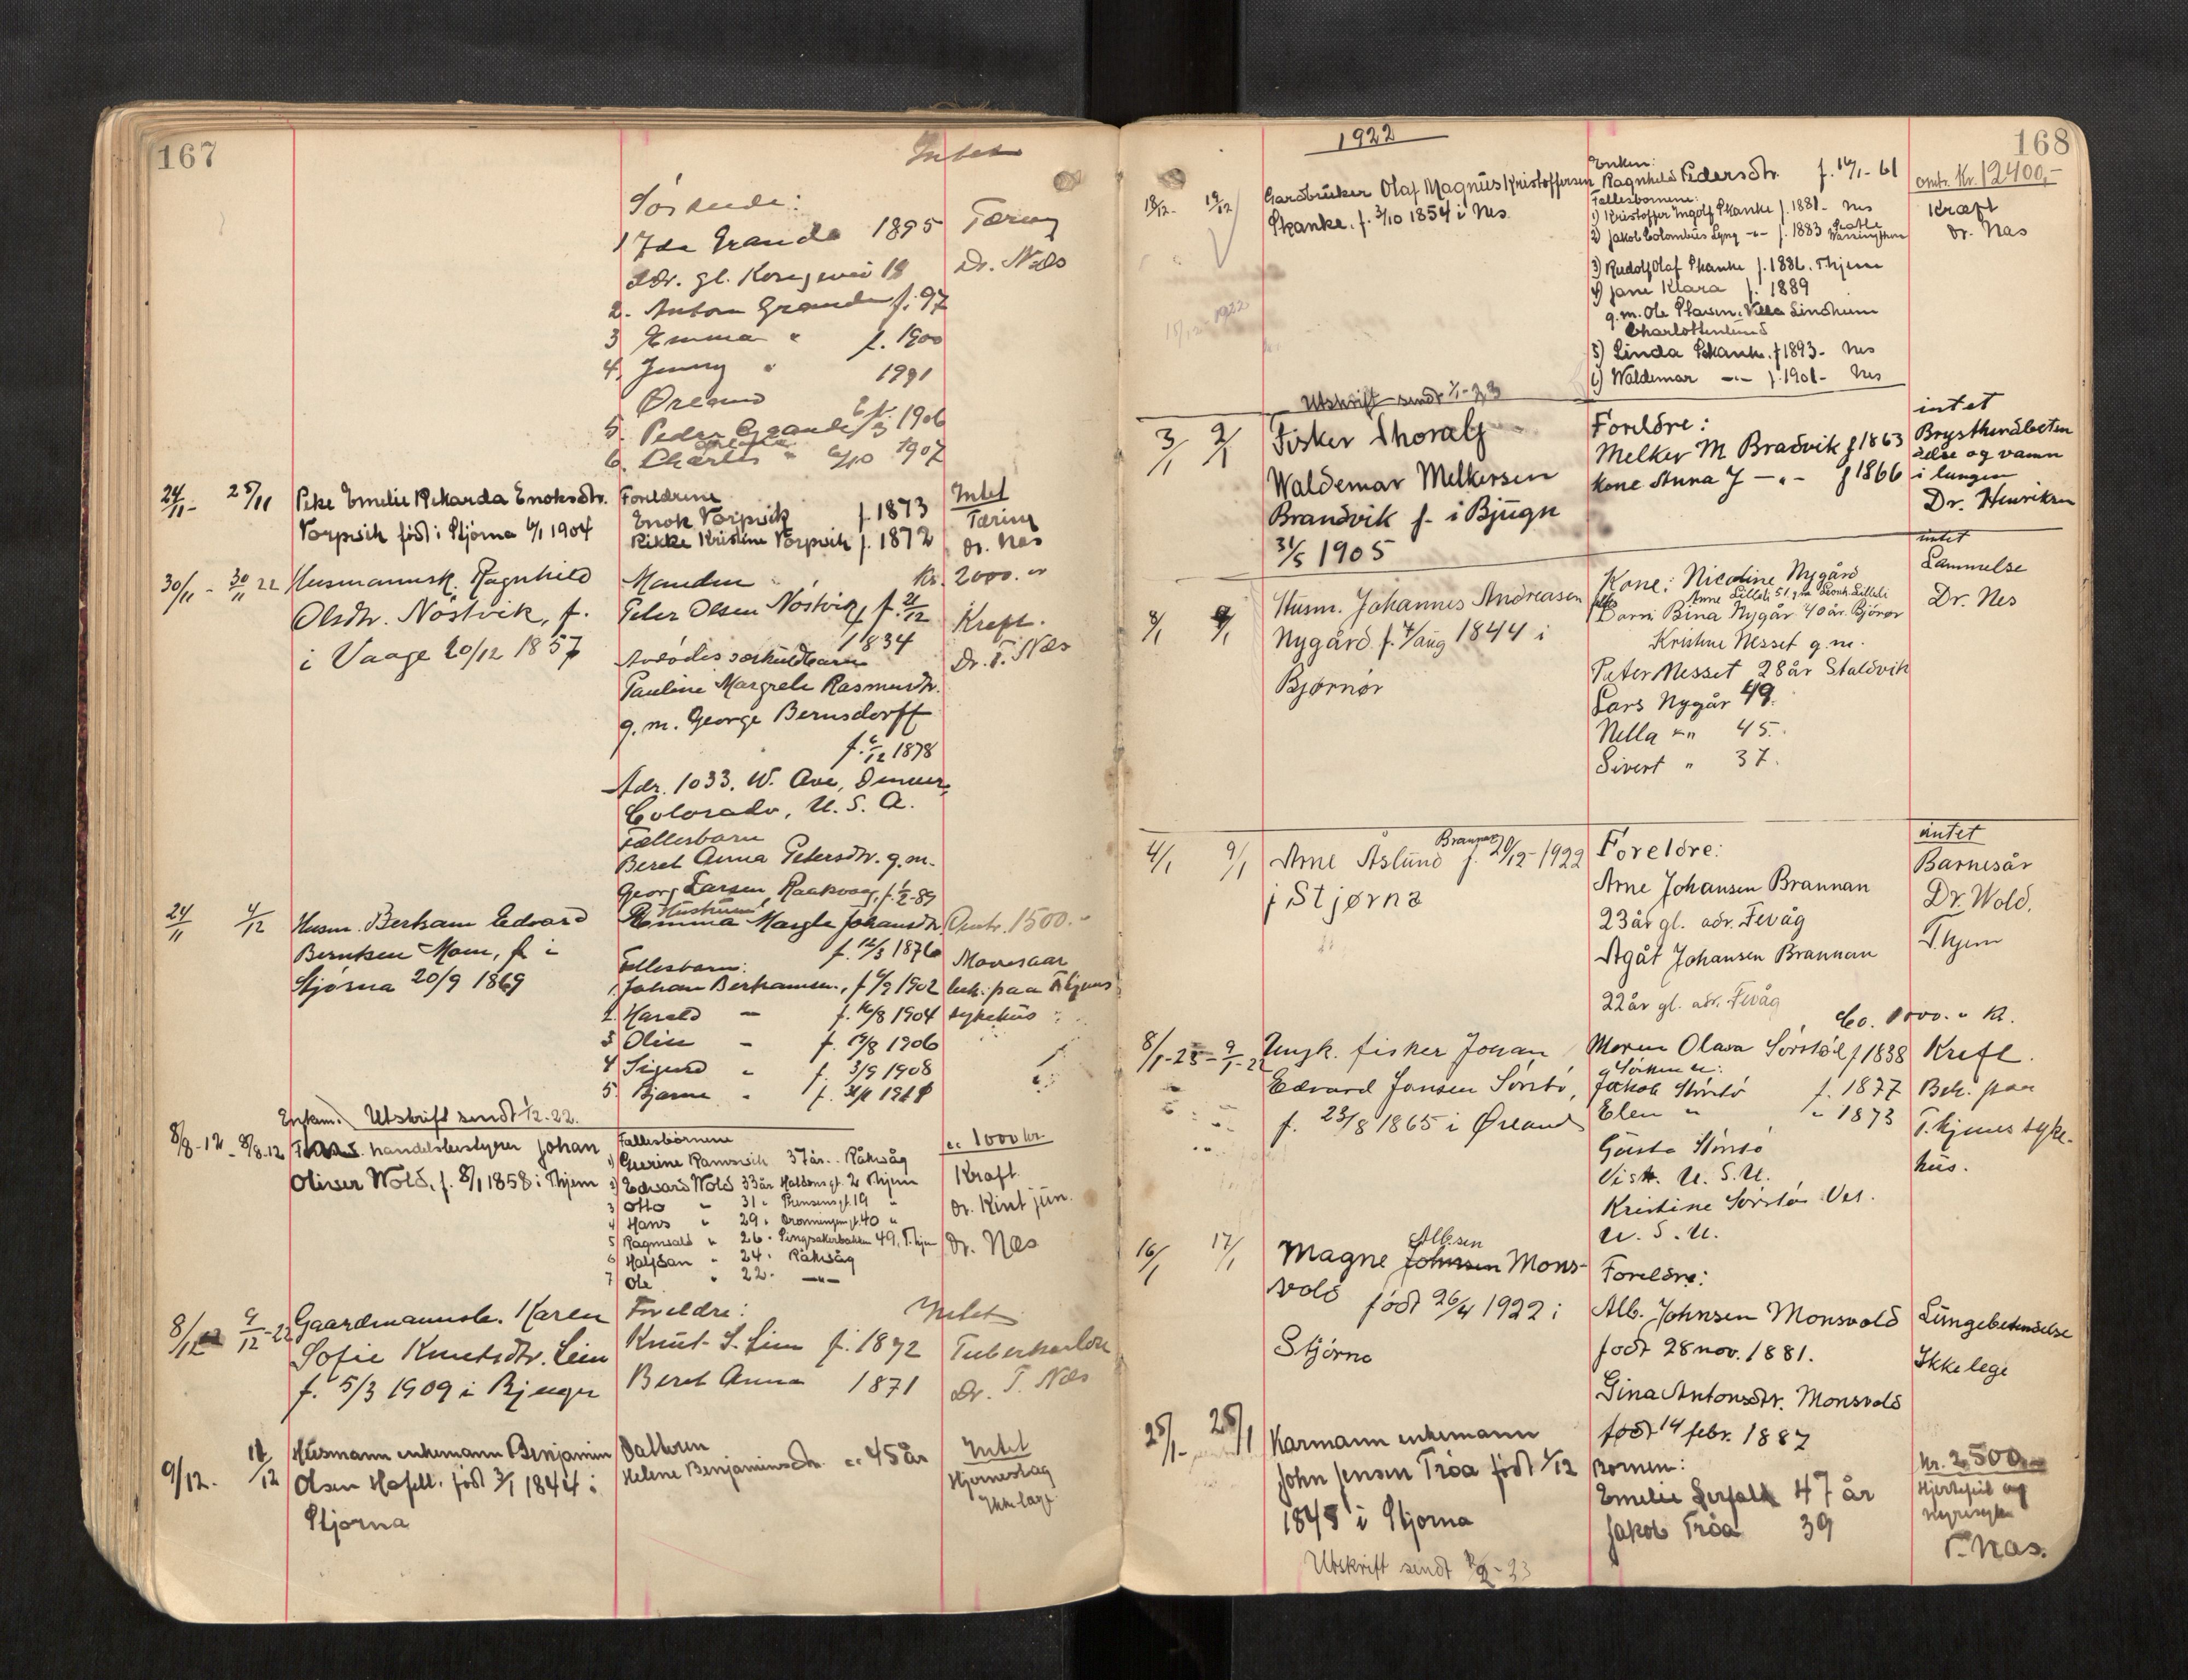 167
Intet
Søskende:
1 Ida Grande 1895 Tæring
adr. gl. Kongevei 18 Dr. Næs
2. Anton Grande f. 97
3 Emma " f. 1900
4, Jenny " 1991
Ørland
5. Peder Grande 1906
6. Charles " 1907
24/11- 25/11 Pike Emelie Rikarda Enoksdtr. Foreldrene Intet
Vorpvik født i Stjørna 6/1 1904 Enok Vorpvik f 1873 Tæring
Rikke Kristine Vorpvik f. 1872 Dr. Næs
30/11 - 30/11 22 Husmannsk. Ragnhild Manden Kr. 2000.
Olsdtr. Nöstvik, f. Peter Olsen Nöstvik, f. 21/12 1834 Kreft.
i Vaage 20/12 1857 Avdødes særkuldbarn Dr. T. Næs
Pauline Margrete Rasmusdtr.
g. m. George Bernsdorff
f. 6/12 1878
Adr. 1033. W. Ave, Denver,
Colorado, U. S. A.
Fællesbarn
Beret Anna Petersdtr. g. m.
Georg Larsen Raakvaag, f. 1/2-89
24/11 4/12 Husm. Bertram Edvard Hustrue Margte Johansdtr. Omtr. 1500.-
Berntsen Moen, f i f. 12/5 1876 Mavesaar
Stjørna 20/9 1869 Fellesbarn:
1. Johan Bertramsen, f 6/2 1902 beh. paa T.hjems
2. Harald — f. 16/8 1904 sykehus
3 Olise - f. 19/8 1906
4 Sigurd - f. 3/9 1908
5 Bjarne - f.
Enkem. Utskrift sendt 1/2-22.
8/9-12 - 8/9-12 handelsbestyrer Johan Fællesbörnene ca 1000 kr.
Oliver Wold, f. 8/1 1858 i T.hjem 1) Ramsvik 37 år.. Råkvåg Kraft
2) Edvard Wold 33 år Haldensgt. 2 T.hjem
3/ Otto " 31 " Prinsensgt. 19 " Dr. Kint jun.
4/ Hans " 29 " Dronningensgt. 40 "
5/ Ragnvald " 26 " Singsakerbakken 49, T.hjem Dr. Næs
6/ Halfdan - 24 " Råkvåg
7/ Ole " 22 " —"—
8/12 9/12-22 Gaardmannsb. Karen Foreldre: Intet
Sofie Knutsdtr. Lein Knut S. Lien f. 1872 Tuberkulose
f. 5/3 1909 i Bjugn Beret Anna 1871 Dr. T. Næs
9/12. 11/12 Husmann enkemann Benjamin Datteren Intet
Olsen Hofell. født 3/1 1844 i Helene Benjaminsdtr. ca 45 år Hjerneslag
Stjørna Ikke læge
168
1922
18/12- 19/12 Gardbruker Olaf Magnus Kristoffersen Enken: Ragnhild Pedersdtr. f. 14/1-61 omtr. Kr. 12400,-
Skanke. f. 3/10 1854 i Nes. Fællesbørnene: Kraft
1) Kristoffer Ingolf Skanke f. 1881 - Nes Dr. Næs
2) Jakob Colombus Lyng -"- f. 1883 Seattle
3) Rudolf Olaf Skanke f. 1886. T.hjem
4) Jane Klara f. 1889
g. m. Ole Plassen. Villa Lindheim
Charlottenlund
5) Linda Skanke. f 1893 - Nes
6) Waldemar -"- f. 1901 - Nes
Utskrift sendt 1/1-23
3/1 9/1 Fisker Thoralf Foreldre: intet
Waldemar Melkersen Melker M Bradvik f 1863 Brysthindebeten
Brandvik f. i Bjugn kone Anna J —"— f 1866 delse og vann i lungen
31/5 1905 Dr. Henriksen
8/1 9/1 Husm. Johannes Andreasen Kone: Nicoline Nygård intet
Nygård f. /aug 1844 i Barn Bina Nygår 40 år. Bjønør Lammelse
Bjørnør Kristine Nesset g. m. Dr. Nes
Peter Nesset 28 år Staldvik
Lars Nygår 49.
Nella " 45.
Sivert " 37.
4/1 9/1 Arne Åslund Brannan f. 20/12 - 1922 Foreldre: intet
i Stjørna Arne Johansen Brannan Barnesår
23 år gl. adr. Fevåg Dr. Wold.
Agåt Johansen Brannan T.hjem
22 år gl. adr. Fevåg
8/1-23 - 9/1-22 Ungk. fisker Johan Moren Olava Sørstø f 1838 Kreft.
Edvard Jansen Sørstø, Jakob Sörstø f. 1877 Beh. paa
f. 23/8 1865 i Ørland Elen " " 1873 T.hjems syke-
Gústa Sørstö hus.
Vist. U. S. A.
Kristine Sørstø Vet.
U. S. A.
16/1 17/1 Magne Albsen Johnsen Mons- Foreldre:
vold født 26/4 1922 i Alb. Johnsen Monsvold Lungebetendelse
Stjørna født 28 nov. 1881. Ikke lege
Gina Antonsdtr. Monsvold
født 14 febr. 1887
25/1- 25/1 Kårmann enkemann Børnene: Kr. 2500,-
John Jensen Tröa født 1/12 Emelie 47 år Hjertefeil og
1845 i Stjørna Jakob Tröa 39 nyresyke
Utskrift sendt 8/2-23 T. Næs.